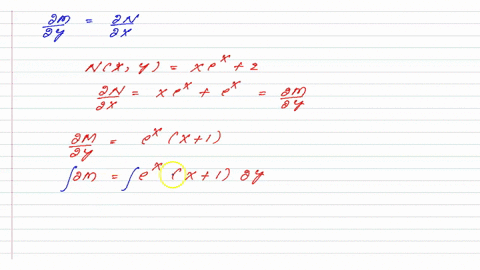 ∂M/∂y = ∂N/∂x
N(x, y) = xe^x + 2
∂N/∂x = xe^x + e^x = ∂M/∂y
∂M/∂y = e^x (x+1)
∫∂M = ∫e^x (x+1) ∂y